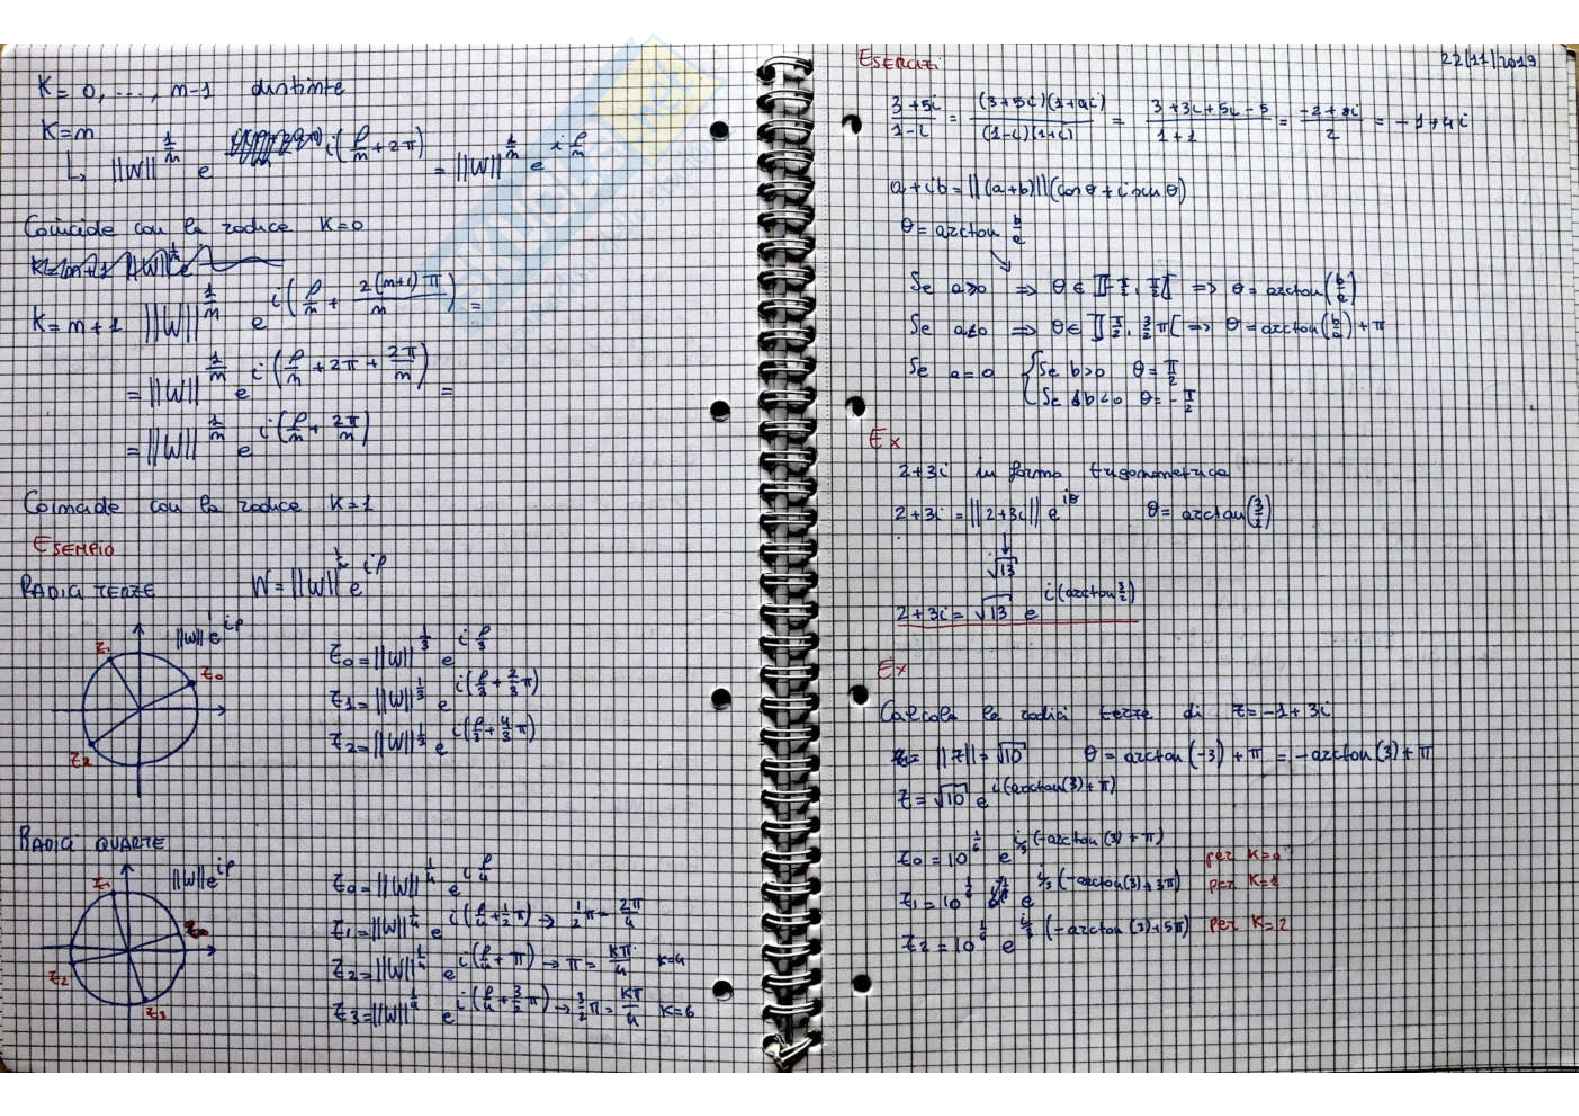 K= 0, ..., n-1 distinte
K=n
↳ ||W||^{1/n} e^{i(ρ/n + 2π)} = ||W||^{1/n} e^{i ρ/n}
Coincide con la radice K=0
K= n+1 ||W||^{1/n} e^{i(ρ/n + 2(n+1)π/n)} =
= ||W||^{1/n} e^{i(ρ/n + 2π + 2π/n)} =
= ||W||^{1/n} e^{i(ρ/n + 2π/n)}
Coincide con la radice K=1
ESEMPIO
RADICI TERZE W= ||W|| e^{iρ}
||W|| e^{iρ}
z1
z0
z2
z0=||W||^{1/3} e^{i ρ/3}
z1=||W||^{1/3} e^{i(ρ/3 + 2/3 π)}
z2=||W||^{1/3} e^{i(ρ/3 + 4/3 π)}
RADICI QUARTE
||W|| e^{iρ}
z1
z0
z2
z3
z0=||W||^{1/4} e^{i ρ/4}
z1=||W||^{1/4} e^{i(ρ/4 + 1/2 π)} → 1/2 π = 2π/4
z2=||W||^{1/4} e^{i(ρ/4 + π)} → π = Kπ/4 K=4
z3=||W||^{1/4} e^{i(ρ/4 + 3/2 π)} → 3/2 π = Kπ/4 K=6
ESERCIZI 22/11/2019
(3+5i)/(1-i) = (3+5i)(1+i)/((1-i)(1+i)) = (3+3i+5i-5)/(1+1) = (-2+8i)/2 = -1+4i
a+ib=||(a+b)||(cos θ + i sen θ)
θ= arctan b/a
Se a>0 ⇒ θ ∈ ]-π/2, π/2[ ⇒ θ = arctan(b/a)
Se a<0 ⇒ θ ∈ ]π/2, 3/2 π[ ⇒ θ = arctan(b/a) + π
Se a=0 { Se b>0 θ = π/2
Se b<0 θ = -π/2
Ex
2+3i in forma trigonometrica
2+3i = ||2+3i|| e^{iθ} θ= arctan(3/2)
↓
√13
2+3i= √13 e^{i(arctan 3/2)}
Ex
Calcola le radici terze di z=-1+3i
||z||= √10 θ = arctan(-3) + π = -arctan(3) + π
z= √10 e^{i(arctan(3) + π)}
z0 = 10^{1/6} e^{i/3 (-arctan(3) + π)} per K=0
z1 = 10^{1/6} e^{i/3 (-arctan(3) + 3π)} per K=1
z2 = 10^{1/6} e^{i/3 (-arctan(3) + 5π)} per K=2